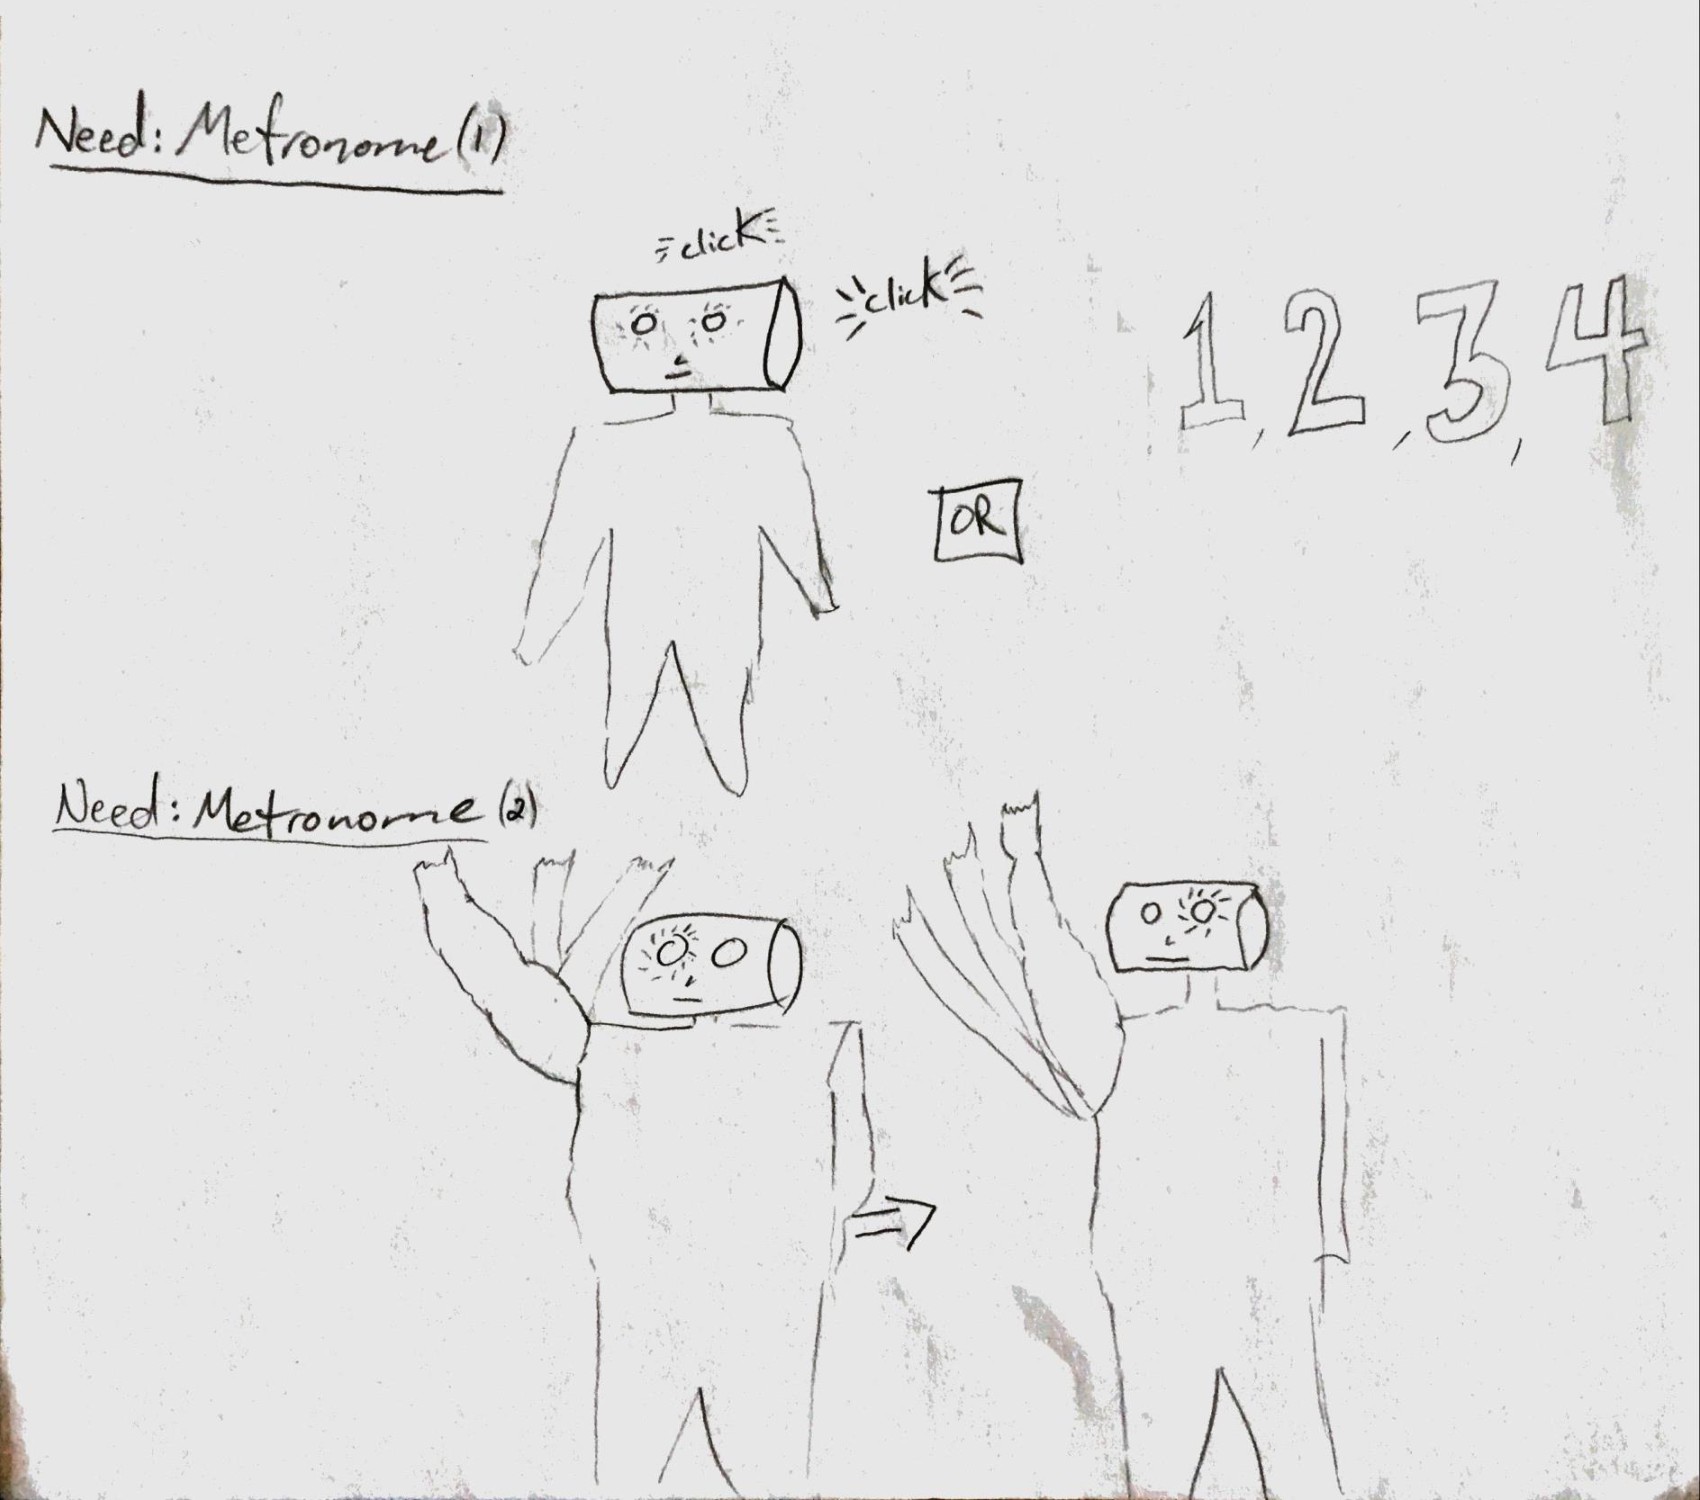 Need: Metronome (1)
click
click
1, 2, 3, 4
OR
Need: Metronome (2)